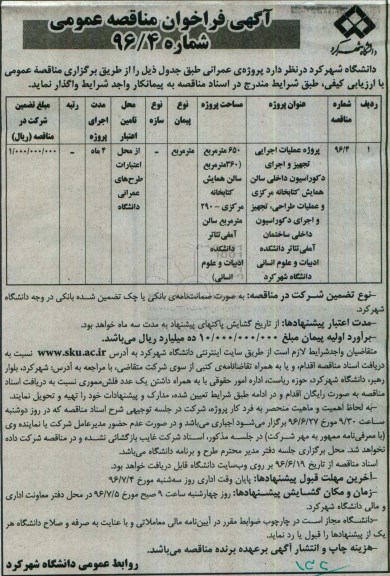 آگهی فراخوان مناقصه عمومی
شماره ۹۶/۴
دانشگاه شهرکرد
دانشگاه شهرکرد درنظر دارد پروژه‌ی عمرانی طبق جدول ذیل را از طریق برگزاری مناقصه عمومی
با ارزیابی کیفی، طبق شرایط مندرج در اسناد مناقصه به پیمانکار واجد شرایط واگذار نماید.
ردیف شماره مناقصه عنوان پروژه مساحت پروژه نوع پیمان نوع سازه محل تامین اعتبار مدت اجرای پروژه رتبه مبلغ تضمین شرکت در مناقصه (ریال)
۱ ۹۶/۴ پروژه عملیات اجرایی ۶۵۰ مترمربع مترمربع – از محل ۴ ماه – ۱/۰۰۰/۰۰۰/۰۰۰
تجهیز و اجرای (۳۶۰مترمربع اعتبارات
دکوراسیون داخلی سالن سالن همایش طرح‌های
همایش کتابخانه مرکزی کتابخانه عمرانی
و عملیات طراحی، تجهیز مرکزی – ۲۹۰ دانشگاه
و اجرای دکوراسیون مترمربع سالن
داخلی ساختمان آمفی‌تئاتر
آمفی‌تئاتر دانشکده دانشکده
ادبیات و علوم انسانی ادبیات و علوم
دانشگاه شهرکرد انسانی)
–نوع تضمین شرکت در مناقصه: به صورت ضمانت‌نامه‌ی بانکی یا چک تضمین شده بانکی در وجه دانشگاه
شهرکرد.
–مدت اعتبار پیشنهادها: از تاریخ گشایش پاکتهای پیشنهاد به مدت سه ماه خواهد بود.
–برآورد اولیه پیمان مبلغ ۱۰/۰۰۰/۰۰۰/۰۰۰ ده میلیارد ریال می‌باشد.
متقاضیان واجدشرایط لازم است از طریق سایت اینترنتی دانشگاه شهرکرد به آدرس www.sku.ac.ir نسبت به
دریافت اسناد مناقصه اقدام، و یا به همراه تقاضانامه‌ی کتبی از سوی شرکت متقاضی، با مراجعه به آدرس: شهرکرد، بلوار
رهبر، دانشگاه شهرکرد، حوزه ریاست، اداره امور حقوقی با به همراه داشتن یک عدد فلش‌مموری نسبت به دریافت اسناد
مناقصه به صورت رایگان اقدام و در ادامه طبق شرایط تعیین شده، مدارک و پیشنهادات خود را تهیه و تحویل نمایند.
–به لحاظ اهمیت و ماهیت منحصر به فرد کار پروژه، شرکت در جلسه توجیهی شرح اسناد مناقصه که در روز دوشنبه
ساعت ۹/۳۰ مورخ ۹۶/۶/۲۷ برگزار می‌شود اجباری می‌باشد و در صورت عدم حضور مدیرعامل شرکت یا نماینده وی
(با معرفی‌نامه ممهور به مهر شرکت) در جلسه مذکور، اسناد شرکت غایب بازگشائی نشده و در مناقصه شرکت داده
نخواهد شد. محل برگزاری جلسه دفتر مدیر محترم طرح و برنامه دانشگاه می‌باشد.
اسناد مناقصه از تاریخ ۹۶/۶/۱۹ بر روی وب‌سایت دانشگاه قابل دریافت خواهد بود.
–آخرین مهلت قبول پیشنهادها: پایان وقت اداری روز سه‌شنبه مورخ ۹۶/۷/۴
–زمان و مکان گشایش پیشنهادها: روز چهارشنبه ساعت ۹ صبح مورخ ۹۶/۷/۵ در محل دفتر معاونت اداری
و مالی دانشگاه شهرکرد.
–دانشگاه مجاز است در چارچوب ضوابط مقرر در آیین‌نامه مالی معاملاتی و با عنایت به صرفه و صلاح دانشگاه هر
یک از پیشنهادها را قبول یا رد نماید.
–هزینه چاپ و انتشار آگهی برعهده برنده مناقصه می‌باشد.
روابط عمومی دانشگاه شهرکرد